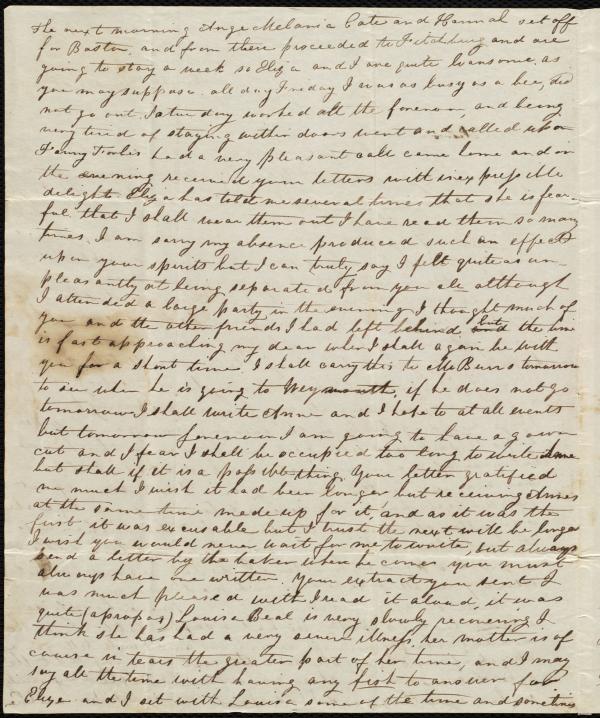 The next morning Ange Melania Cate and Hannah set off
for Boston, and from there proceeded to Fitchburg and are
going to stay a week so Eliza and I are quite lonesome, as
you may suppose. all day Friday I was as busy as a bee, did
not go out, Saturday worked all the forenoon, and being
very tired of staying within doors went and called upon
Fanny Forbes had a very pleasant call came home and in
the evening received your letters with inexpressible
delight. Eliza has told me several times that she is fear-
ful that I shall wear them out I have read them so many
times. I am sorry my absence produced such an effect
upon your spirits but I can truly say I felt quite as un-
pleasantly at being separated from you all although
I attended a large party in the evening, I thought much of
you and the other friends I had left behind but the time
is fast approaching my dear when I shall again be with
you for a short time. I shall carry this to Mr Burrs tomorrow
to see when he is going to Weymouth, if he does not go
tomorrow I shall write Anne and I hope to at all events
but tomorrow forenoon I am going to have a gown
cut and I fear I shall be occupied too long to write
but shall if it is a possible thing. Your letter gratified
me much I wish it had been longer but receiving Annes
at the same time made up for it, and as it was the
first it was excusable but I trust the next will be longer
I wish you would never wait for me to write, but always
send a letter by the baker when he comes you must
always have one written. Your extract you sent I
was much pleased with I read it aloud, it was
quite (apropos) Louisa Beal is very slowly recovering I
think she has had a very severe illness, her mother is of
course in tears the greater part of her time, and I may
say all the time with having any to answer for
Eliza and I sit with Louisa some of the time and sometimes